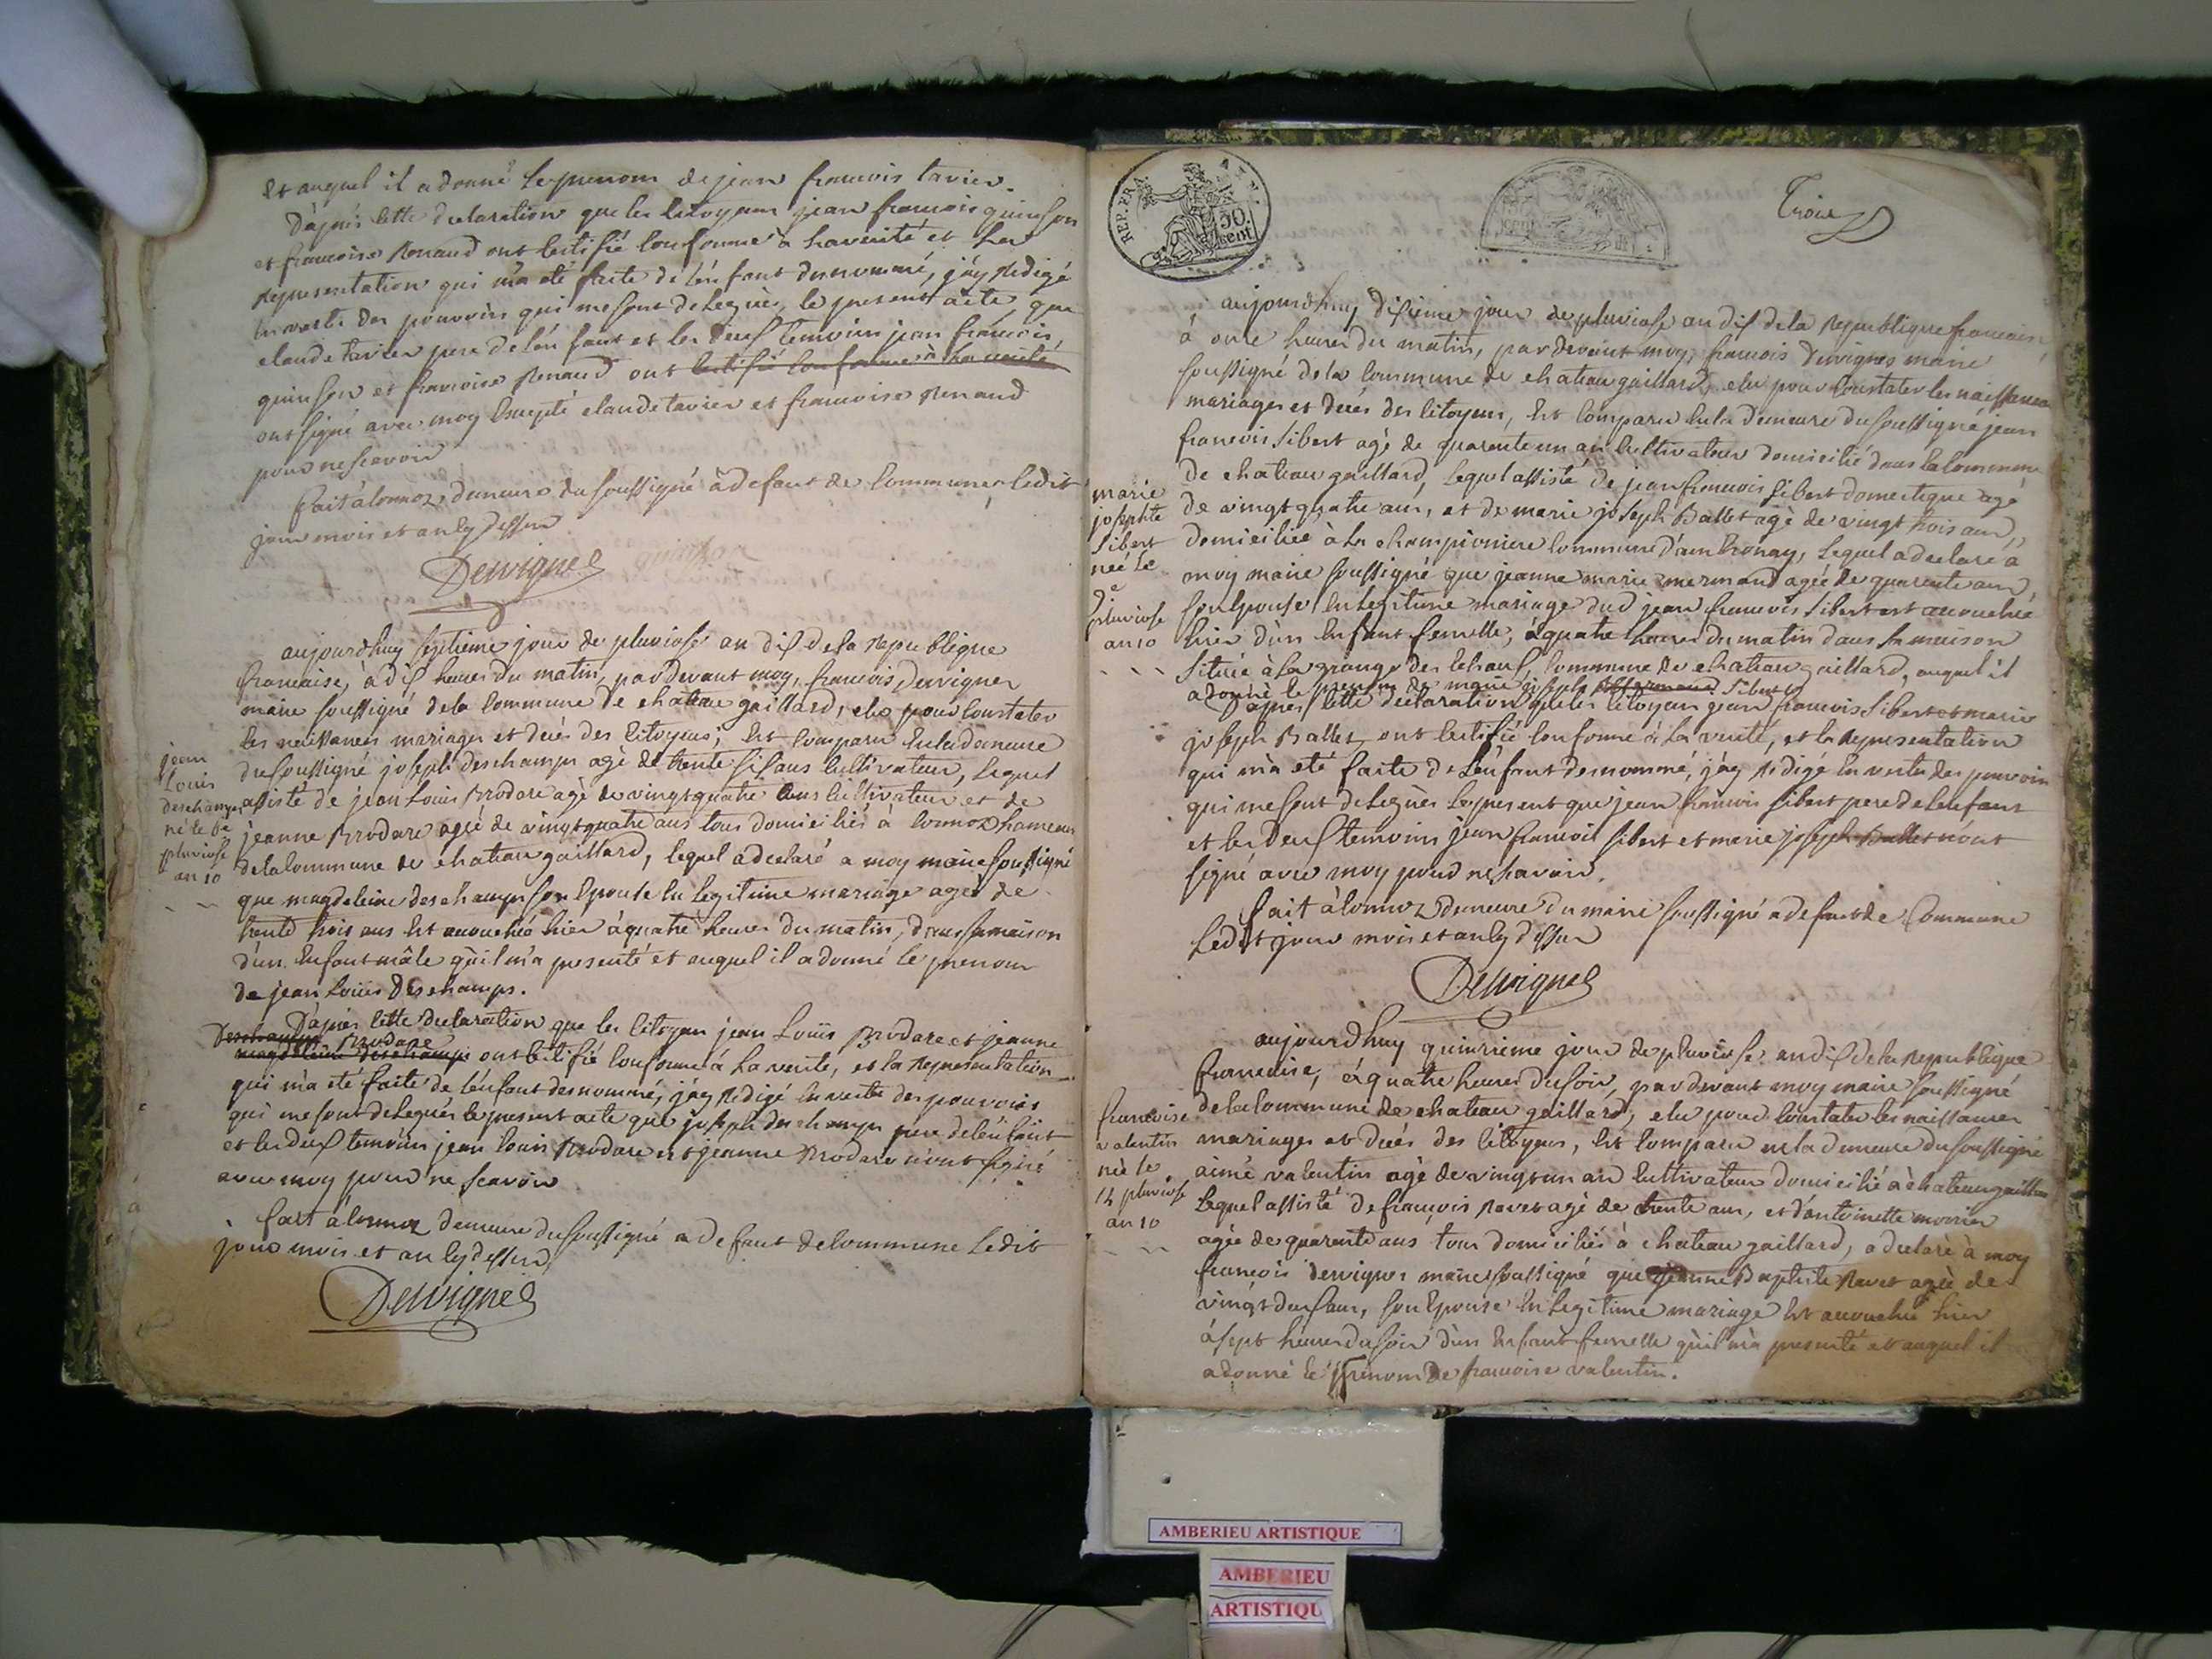 et auquel il a donné le prenom de jean francois tavier.
D'apres cette declaration que les citoyens jean francois quinson
et francoise Renaud ont certifié conforme a la verité et la
representation qui m'a eté faite de l'enfant denommé, j'ay redigé
en vertu des pouvoirs qui me sont delegués, le present acte, que
claude tavier pere de l'enfant et les deux temoins jean francois
quinson et francoise Renaud ont certifié conforme à la verité
ont signé avec moy excepté claude tavier et francoise Renaud
pour ne scavoir
fait à cormoz demeure du soussigné à defaut de commune, ledit
jour mois et an cy dessus
Dervignes quinson
aujourd'huy septieme jour de pluviose an dix de la republique
francaise, à dix heures du matin, pardevant moy, francois Dervignes
maire soussigné de la commune de chateau gaillard, elu pour constater
les naissances mariages et décès des citoyens, est comparu en la demeure
du soussigné joseph deschamps agé de trente six ans cultivateur, lequel
assisté de jean Louis Brodare agé de vingt quatre ans cultivateur et de
jeanne Brodare agée de vingt quatre ans tous domiciliés à cormoz hameau
de la commune de chateau gaillard, lequel a declaré a moy maire soussigné
que magdeleine deschamps son epouse en legitime mariage agée de
trente trois ans est accouchée hier à quatre heures du matin, dans sa maison
d'un enfant mâle qu'il m'a presenté et auquel il a donné le prenom
de jean Louis Deschamps.
D'apres cette declaration que les citoyens jean Louis Brodare et jeanne
Deschamps Brodare
magdeleine deschamps ont certifié conforme à la verité, et la representation
qui m'a eté faite de l'enfant denommé, j'ay redigé en vertu des pouvoirs
qui me sont delegués le present acte que joseph deschamps pere de l'enfant
et les deux temoins jean Louis Brodare et jeanne Brodare n'ont signé
avec moy pour ne scavoir
fait à cormoz demeure du soussigné a defaut de commune Ledit
jour mois et an cy dessus
Dervignes
jean
Louis
deschamps
né le 6e
pluviose
an 10
REP. FRA.
50.
cent
Trois
aujourd'huy dixieme jour de pluviose an dix de la republique francaise,
à onze heures du matin, par devant moy, francois Dervignes maire
soussigné de la commune de chateau gaillard, elu pour constater les naissances
mariages et décés des citoyens, est comparu en la demeure du soussigné jean
francois Sibert agé de quarente un an cultivateur domicilié dans la commune
de chateau gaillard, lequel assisté de jean francois Sibert domestique agé
de vingt quatre ans, et de marie joseph Ballet agée de vingt trois ans,
domiciliée à la championiere commune d'ambronay, lequel a declaré à
moy maire soussigné que jeanne marie mermand agée de quarente ans,
son epouse en legitime mariage dud jean francois Sibert est accouchée
hier d'un enfant femelle, à quatre heures du matin dans sa maison
située à la grange des chaux, commune de chateau gaillard, auquel il
a donné le prenom de marie joseph Sibert
D'apres cette declaration que les citoyens jean francois Sibert et marie
joseph Ballet ont certifié conforme à la verité, et la representation
qui m'a eté faite de l'enfant denommé, j'ay redigé en vertu des pouvoirs
qui me sont delegués le present que jean francois Sibert pere de l'enfant
et les deux temoins jean francois Sibert et marie joseph Ballet n'ont
signé avec moy pour ne scavoir.
fait à cormoz demeure du maire soussigné a defaut de Commune
Ledit jour mois et an cy dessus
Dervignes
marie
josephte
Sibert
née le
9e
pluviose
an 10
aujourd'huy quinzieme jour de pluviose an dix de la republique
francaise, à quatre heures du soir, pardevant moy maire soussigné
de la commune de chateau gaillard, elu pour constater les naissances
mariages et decés des citoyens, est comparu en la demeure du soussigné
aimé valentin agé de vingt un an cultivateur domicilié à chateau gaillard
Lequel assisté de francois Ravet agé de trente ans, et d'antoinette morier
agée de quarente ans tous domiciliés à chateau gaillard, a declaré à moy
francois dervignes maire soussigné que jeanne Baptiste Ravet agée de
vingt deux ans, son epouse en legitime mariage est accouchée hier
à sept heures du soir d'un enfant femelle qu'il m'a presenté et auquel il
a donné le prenom de francoise valentin.
francoise
valentin
née le
14 pluviose
an 10
AMBERIEU ARTISTIQUE
AMBERIEU
ARTISTIQU